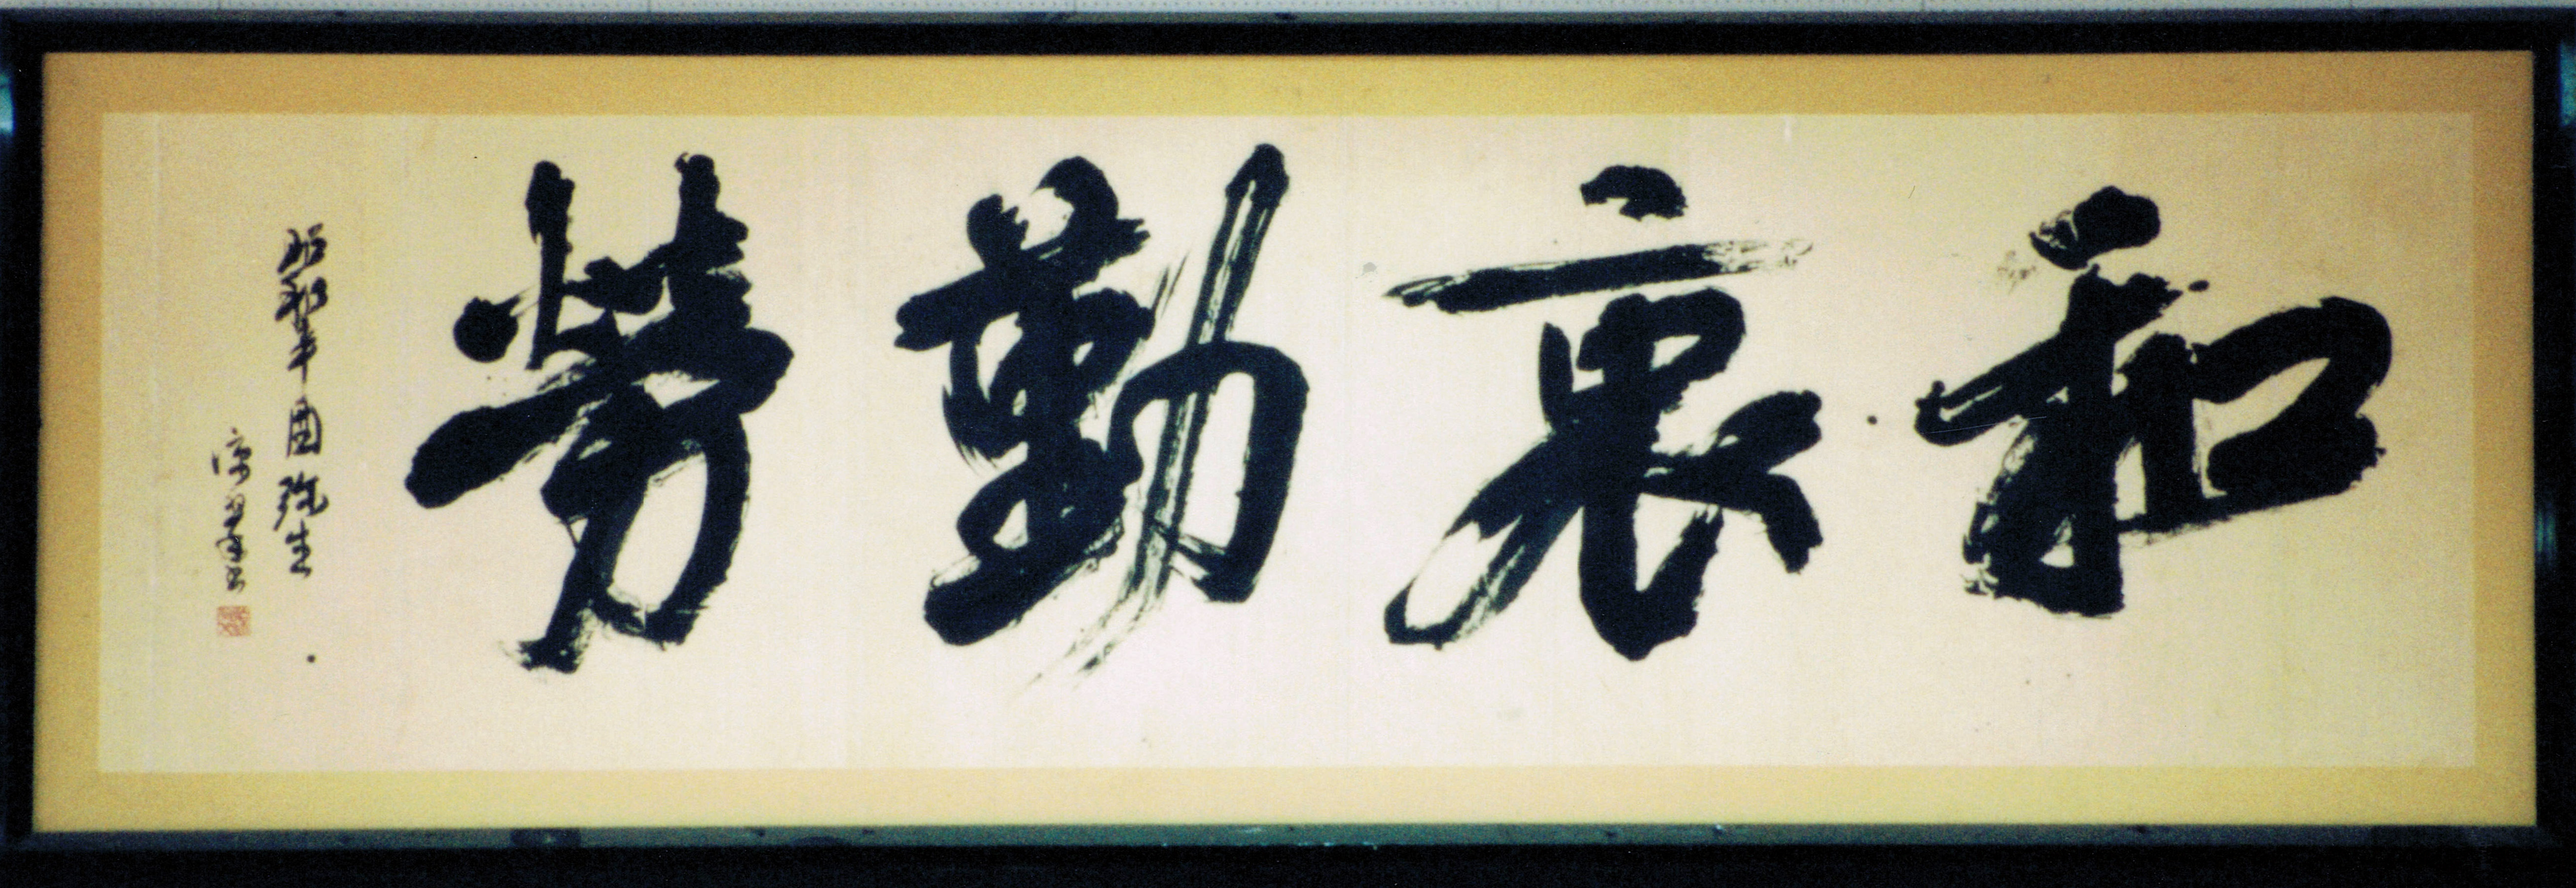 和衷勤労
昭和辛酉弥生